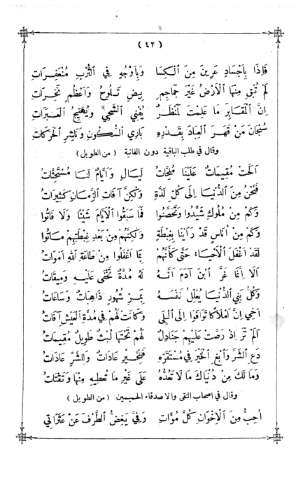 ( ٤٢ )
فَإِذَا بِأَجْسَادٍ عَرِينَ مِنَ الْكِسَا وَبِأَوْجُهٍ فِي التُّرْبِ مُنْعَفِرَاتِ
لَمْ تُبْقِ مِنْهَا الْأَرْضُ غَيْرَ جَمَاجِمٍ بِيضٍ تَلُوحُ وَأَعْظُمٍ نَخِرَاتِ
إِنَّ الْمَقَابِرَ مَا عَلِمْتَ لَمَنْظَرٌ يُفْنِي الشَّجَى وَيُهَيِّجُ الْعَبَرَاتِ
سُبْحَانَ مَنْ قَهَرَ الْعِبَادَ بِقَدْرِهِ بَارِي السُّكُونِ وَنَاشِرِ الْحَرَكَاتِ
وقال في طلب الباقية دون الفانية (من الطويل)
أَلَحَّتْ مُقِيمَاتٌ عَلَيْنَا مُلِحَّاتُ لَيَالٍ وَأَيَّامٌ لَنَا مُسْتَحِثَّاتُ
فَنَحْنُ مِنَ الدُّنْيَا إِلَى كُلِّ لَذَّةٍ وَلٰكِنَّ آفَاتِ الزَّمَانِ كَثِيرَاتُ
وَكَمْ مِنْ مُلُوكٍ شَيَّدُوا وَتَحَصَّنُوا فَمَا سَبَقُوا الْأَيَّامَ شَيْئًا وَلَا فَاتُوا
وَكَمْ مِنْ أُنَاسٍ قَدْ رَأَيْنَا بِغِبْطَةٍ وَلٰكِنَّهُمْ مِنْ بَعْدِ غِبْطَتِهِمْ مَاتُوا
لَقَدْ أَغْفَلَ الْأَحْيَاءُ حَتَّى كَأَنَّهُمْ بِمَا أَغْفَلُوا مِنْ طَاعَةِ اللهِ أَمْوَاتُ
أَلَا إِنَّمَا غَرَّ ابْنَ آدَمَ أَنَّهُ لَهُ مُدَّةٌ تَخْفَى عَلَيْهِ وَمِيقَاتُ
وَكُلُّ بَنِي الدُّنْيَا يُعَلِّلُ نَفْسَهُ بِمَرِّ شُهُورٍ ذَاهِبَاتٍ وَسَاعَاتُ
أَخِي إِنَّ أَمْلَاكًا تَوَافَوْا إِلَى الْبِلَى وَكَانَتْ لَهُمْ فِي مُدَّةِ الْعَيْشِ آفَاتُ
أَلَمْ تَرَ إِذْ رُصَّتْ عَلَيْهِمْ جَنَادِلٌ لَهُمْ تَحْتَهَا لُبْثٌ طَوِيلٌ مُقِيمَاتُ
دَعِ الشَّرَّ وَابْغِ الْخَيْرَ فِي مُسْتَقَرِّهِ فَلِلْخَيْرِ عَادَاتٌ وَلِلشَّرِّ عَادَاتُ
وَمَا لَكَ مِنْ دُنْيَاكَ مَالٌ تَعُدُّهُ عَلَى غَيْرِ مَا تُعْطِيهِ مِنْهَا وَتَقْتَاتُ
وقال في اصحاب التقى والاصدقاء الحميمين (من الطويل)
أُحِبُّ مِنَ الْإِخْوَانِ كُلَّ مُؤَاتِ وَفِيٍّ يَغُضُّ الطَّرْفَ عَنْ عَثَرَاتِي